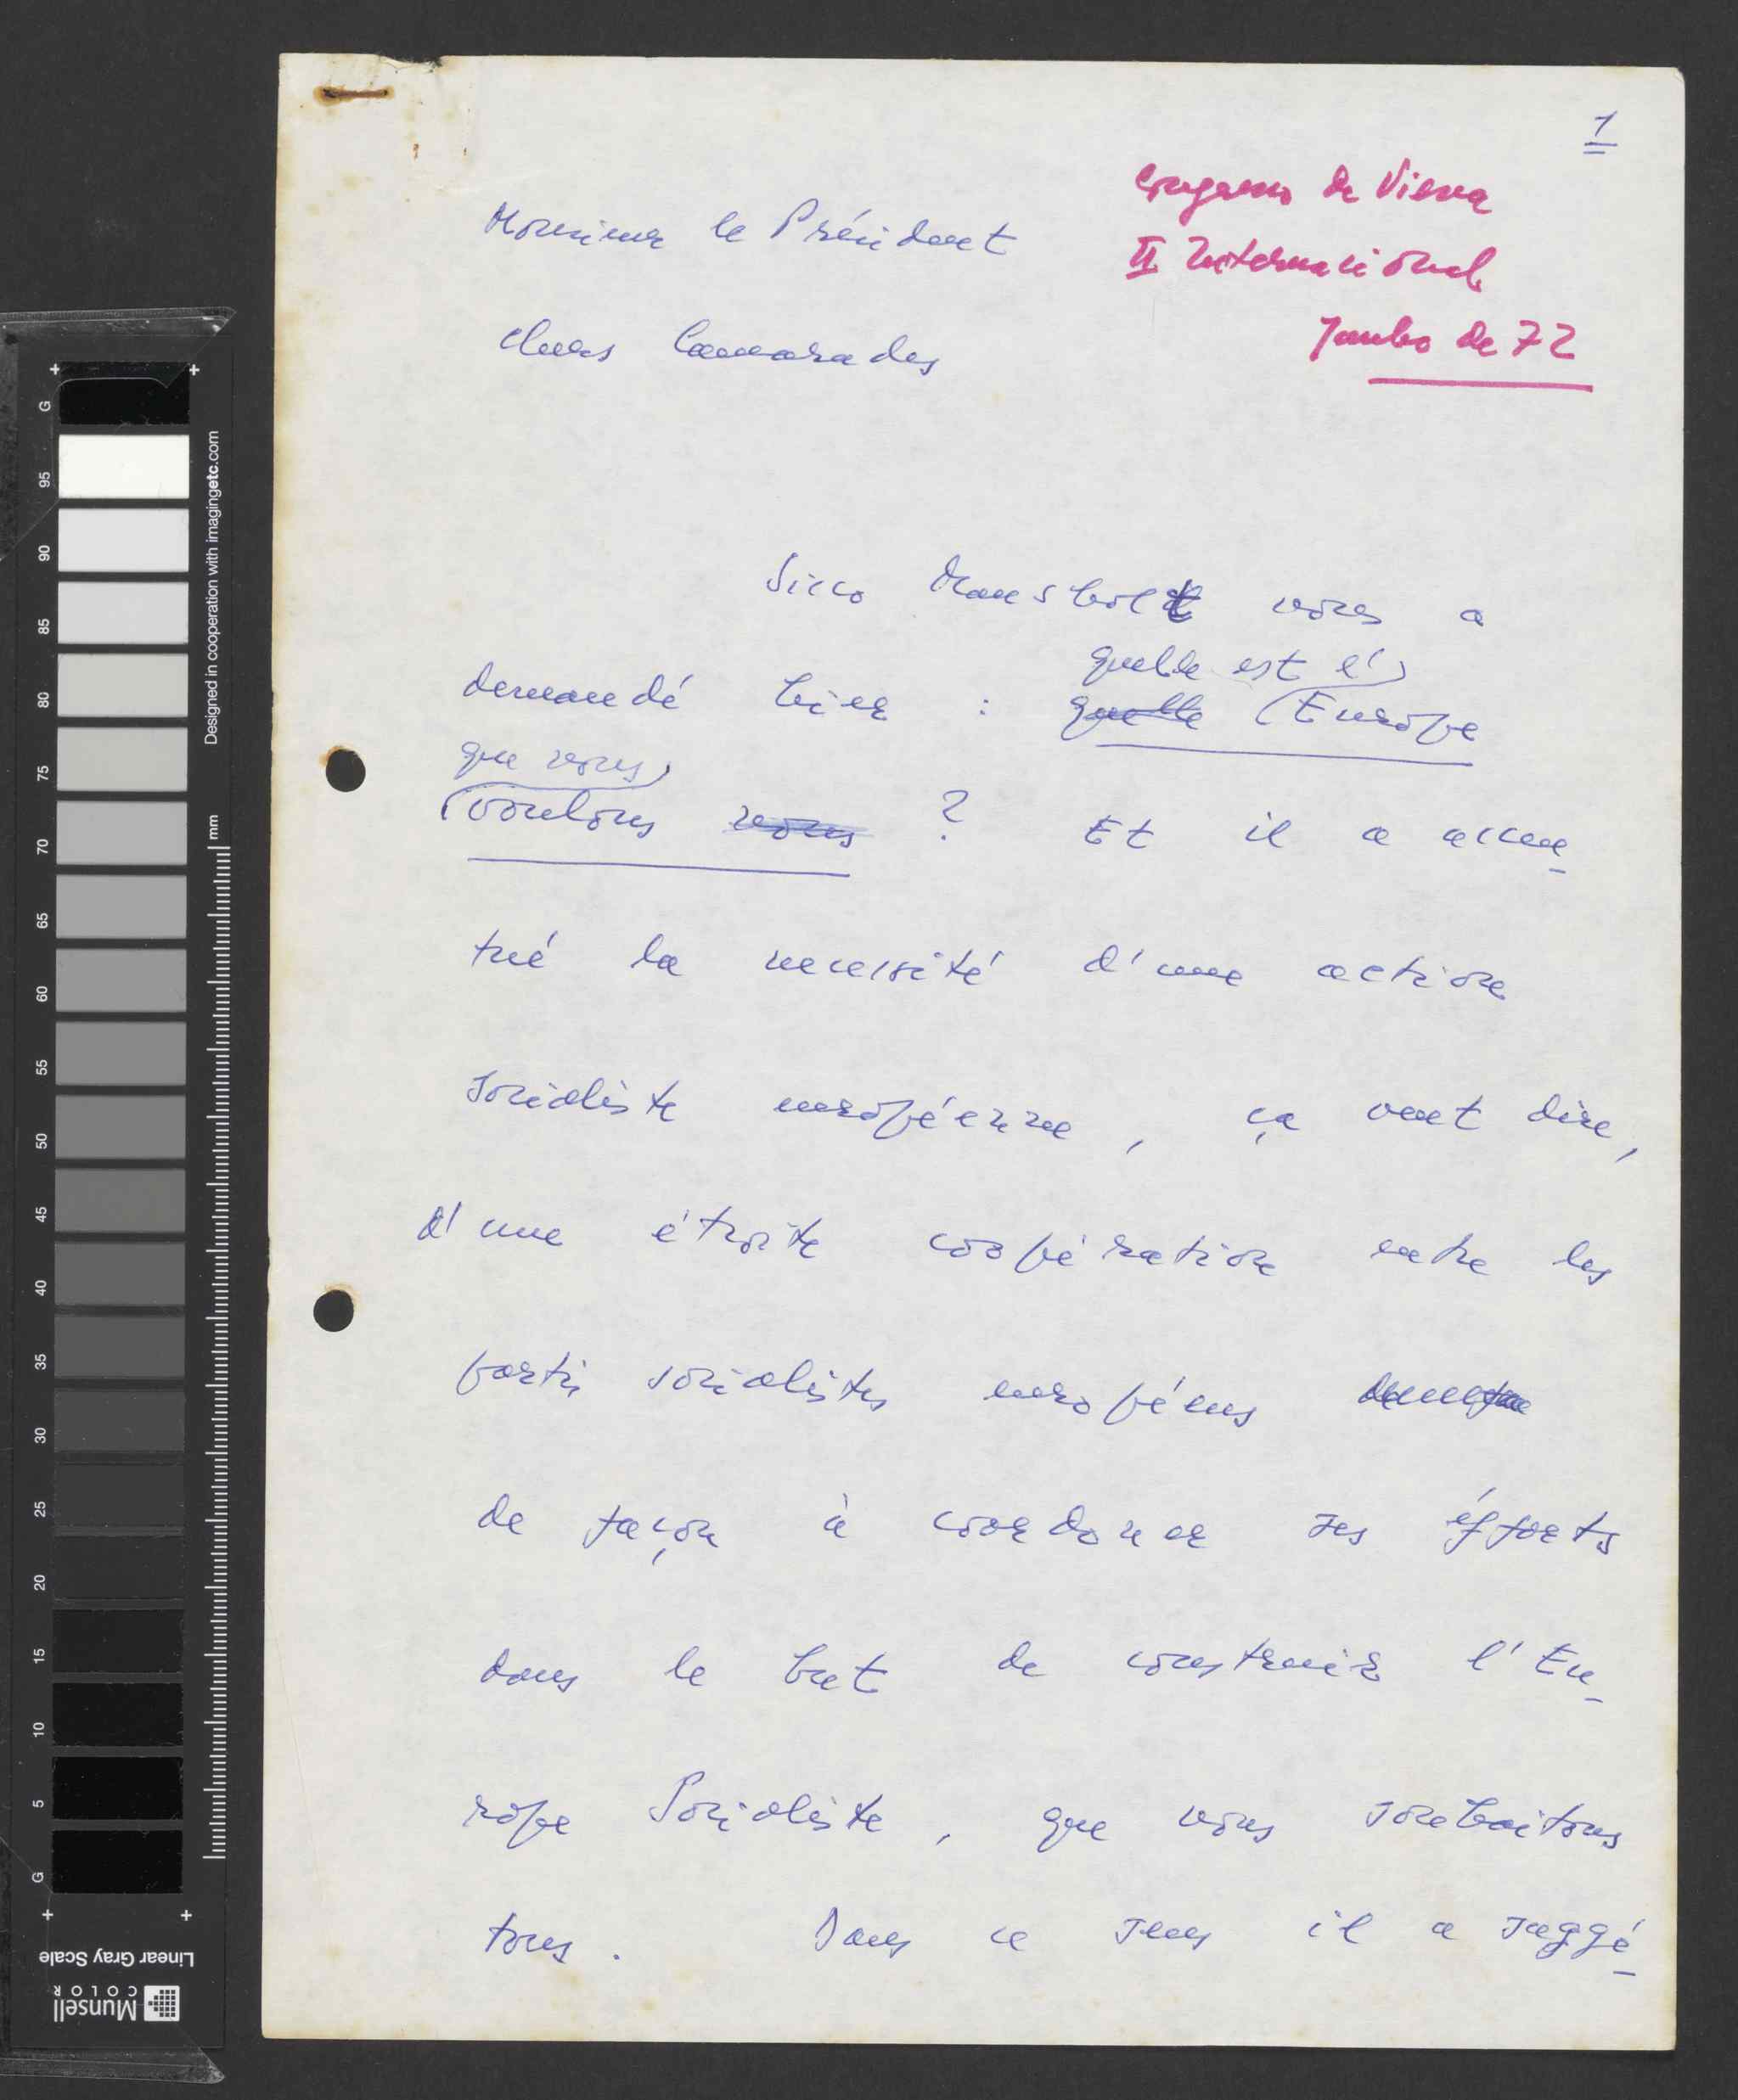 1
Congresso de Viena
II Internacional
Junho de 72
Monsieur le Président
Chers Camarades
Sicco Mansholt vous a
quelle est l'
demandé hier : quelle Europe
que nous
voulons nous ? Et il a accen_
tué la necessité d'une action
socialiste européenne, ça veut dire,
d'une étroite coopération entre les
partis socialistes européens
de façon à coordoner ses éfforts
dans le but de construir l'Eu_
rope Socialiste, que nous souhaitons
tous. Dans ce sens il a suggé_
G
95
90
85
80
75
70
65
60
55
50
45
40
35
30
25
20
15
10
5
G
mm
Designed in cooperation with imagingetc.com
Linear Gray Scale
Munsell
COLOR